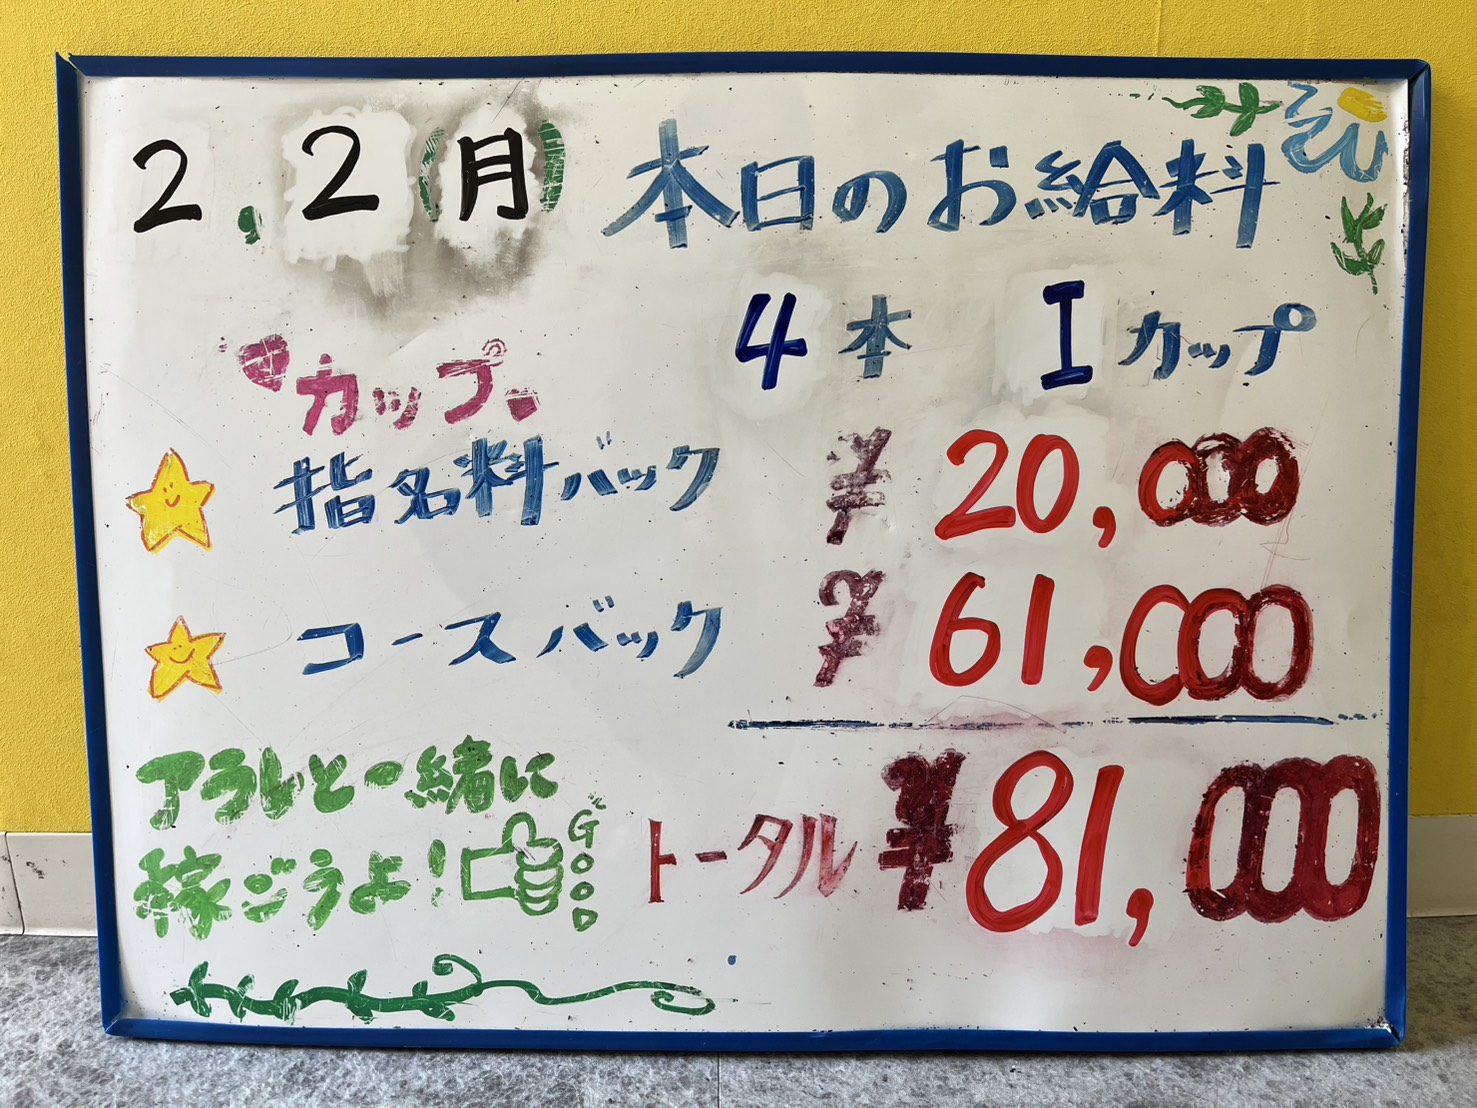 2.2(月) 本日のお給料
4本 Iカップ
カップ
指名料バック ¥20,000
コースバック ¥61,000
アラレと一緒に
稼ごうよ! GOOD
トータル ¥81,000